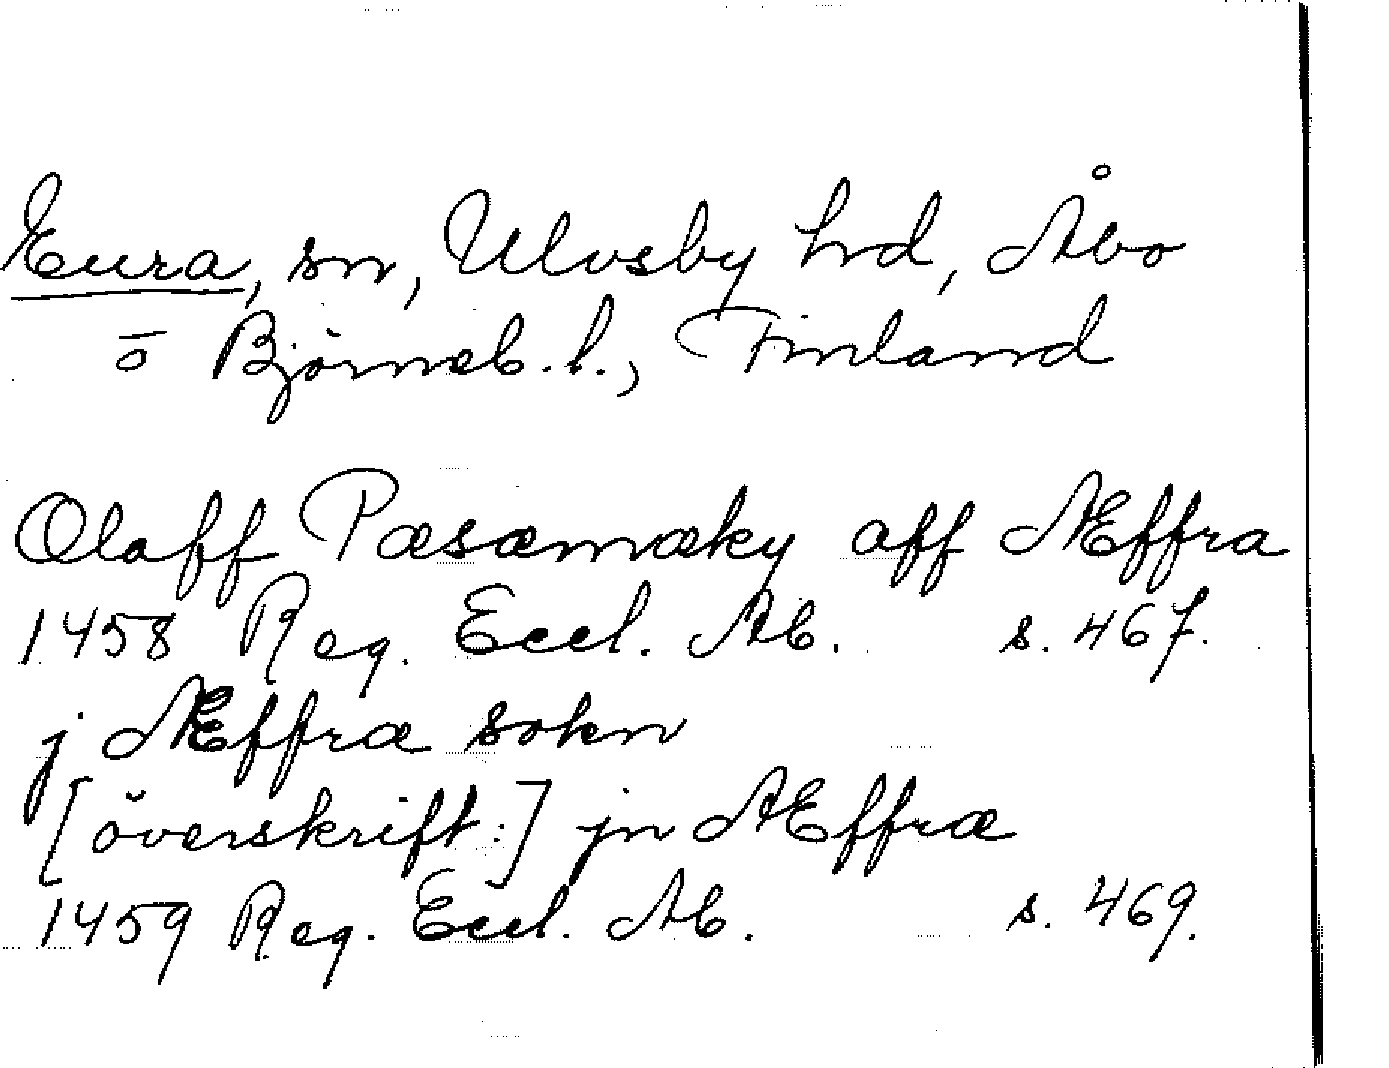 Eura, sn, Ulvsby hd, Åbo
o Björneb. l., Finland
Olaff Pæsæmæky aff Æffra
1458 Reg. Eccl. Ab. s. 467.
j Æffræ sokn
[överskift:] jn Æffræ
1459 Reg. Eccl. Ab. s. 469.